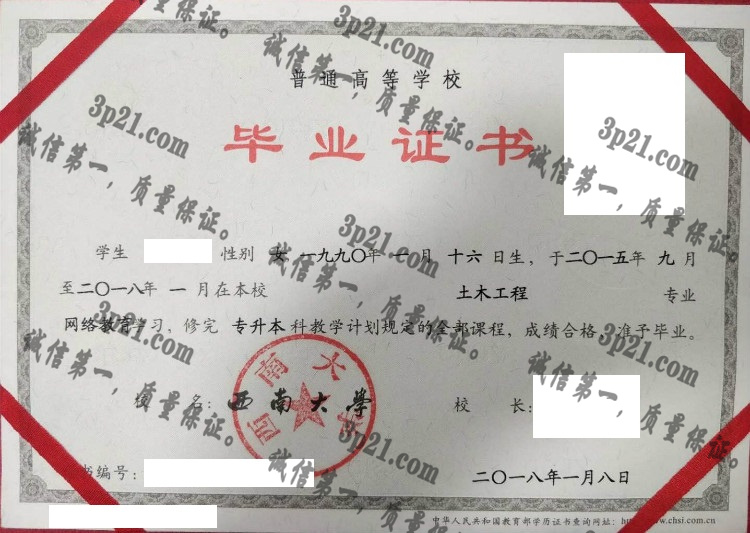 普通高等学校
毕业证书
学生 性别 女 一九九〇年 一月 十六日生，于二〇一五年 九月
至二〇一八年 一月在本校 土木工程 专业
网络教育学习，修完 专升本科教学计划规定的全部课程，成绩合格，准予毕业。
校 名：西南大学 校 长：
西南大学
书编号： 二〇一八年一月八日
中华人民共和国教育部学历证书查询网址：http://www.chsi.com.cn
质量保证。
3p21.com
诚信第一，质量保证。
3p21.com
诚信第一，质量保证。
3p21.com
诚信第一，质量保证。
3p21.com
诚信第一，质量保证。
3p21.com
诚信第一，质量保证。
3p21.com
诚信第一，质量保证。
3p21.com
诚信第一，质量保证。
3p21.com
诚信第一，